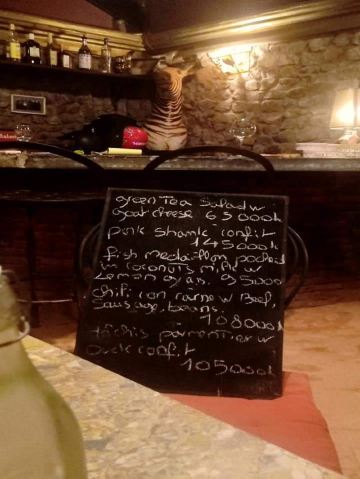 green Tea Salad w
goat cheese 65000k
pork shank confit
145000k
fish medaillon poched
in coconuts milk w
Lemon grass. 95000k
chili con carne w Beef,
sausage, beans.
108000k
hachis parmentier w
Duck confit
105000k